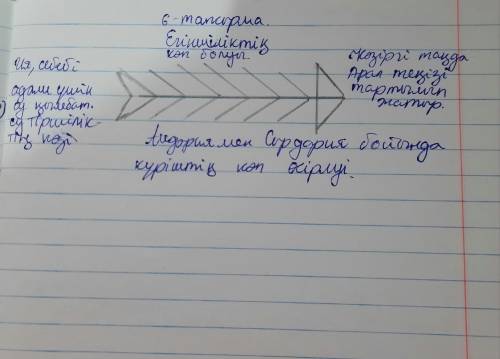 6-тапсырма.
Егіншіліктің
көп болуы.
Ия, себебі
адам үшін
су қымбат.
су тіршілік-
тің көзі
Қазіргі таңда
Арал теңізі
тартылып
жатыр.
Амудария мен Сырдария бойында
күріштің көп егілуі.